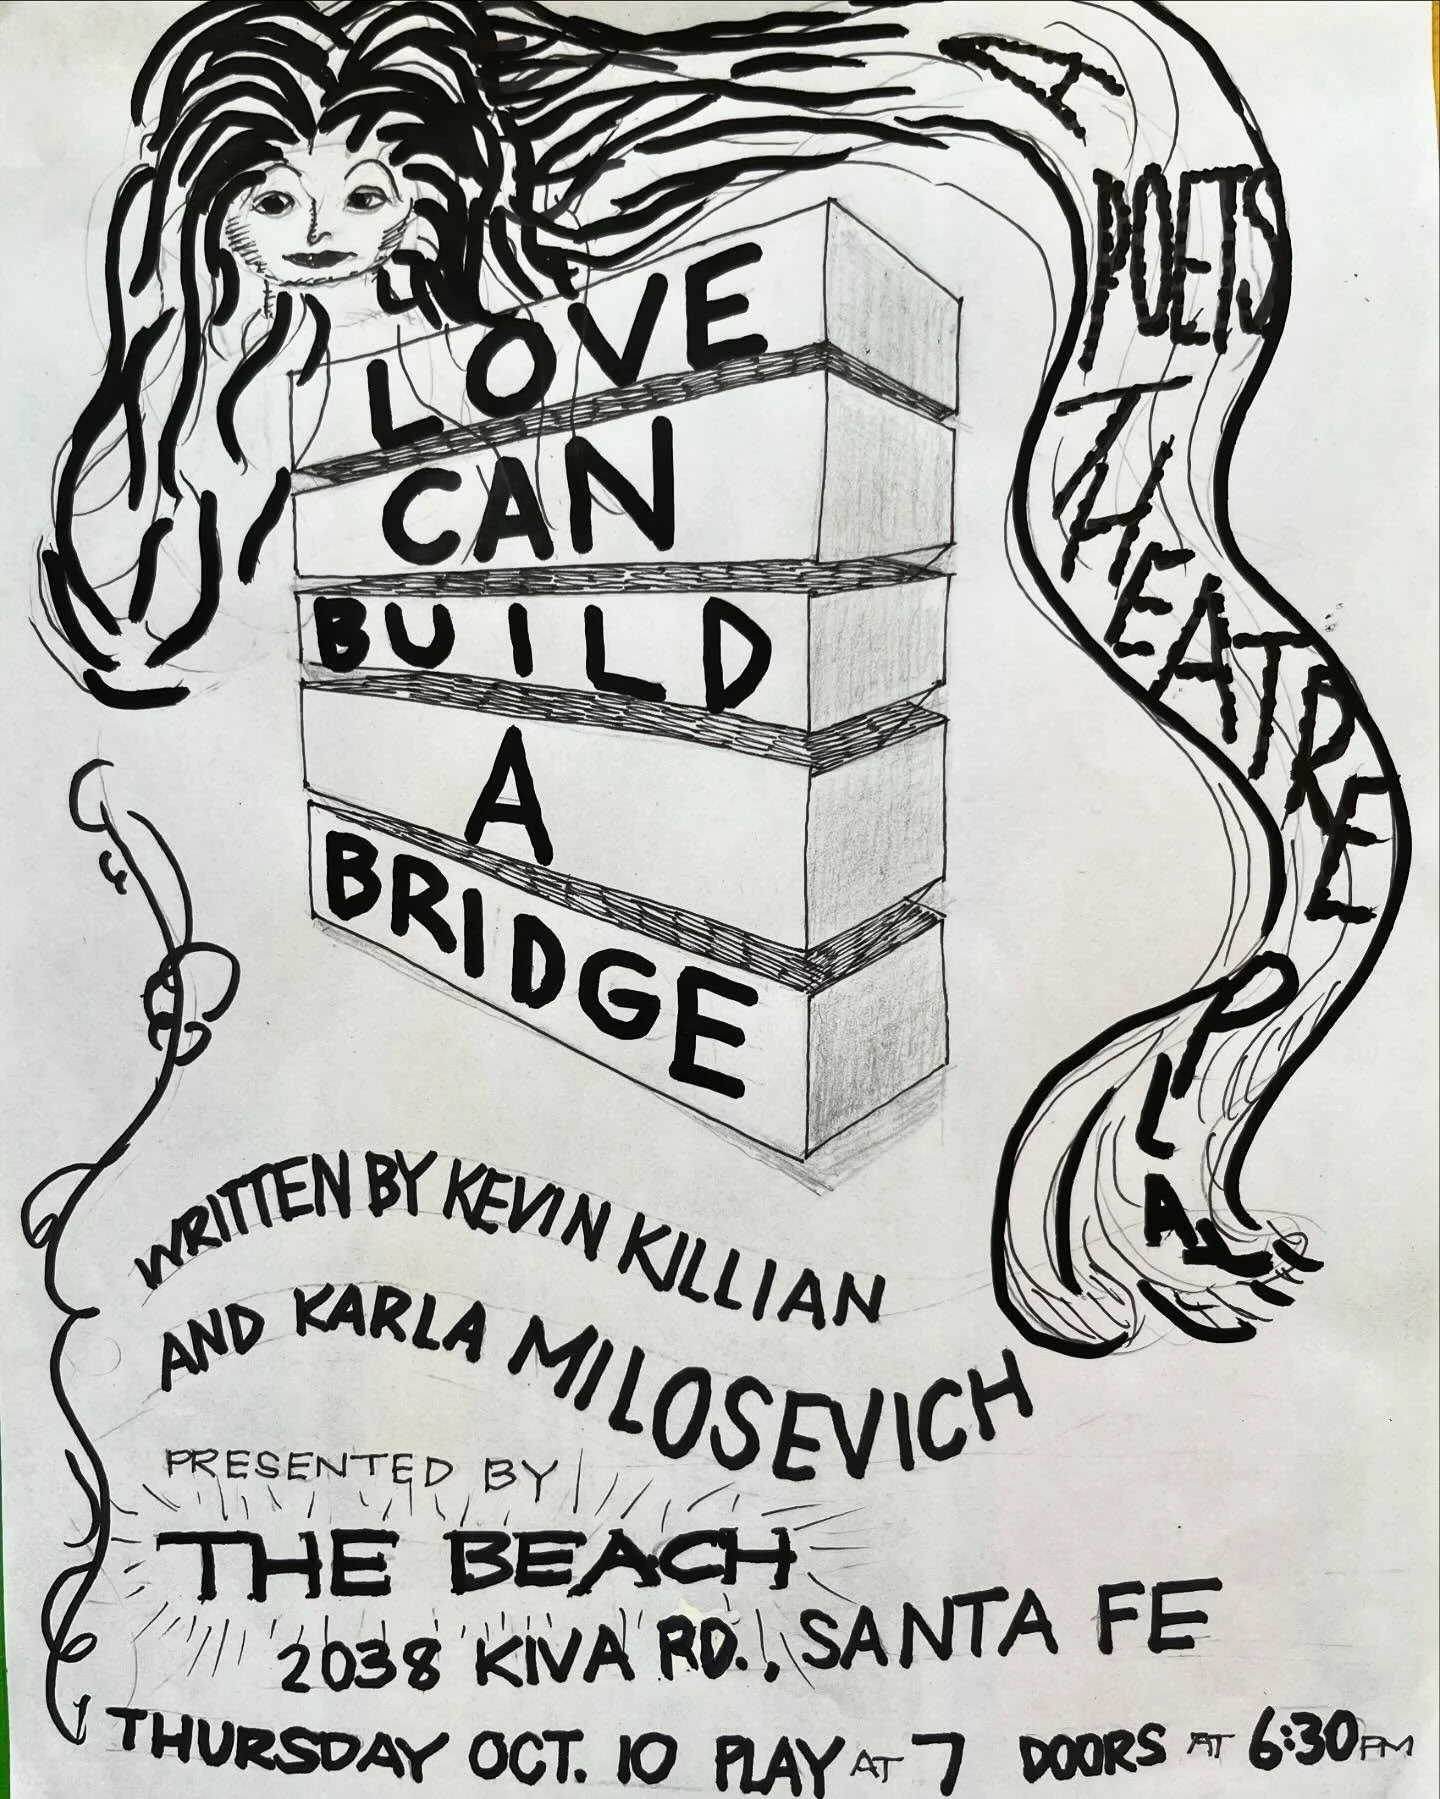 LOVE
CAN
BUILD
A
BRIDGE
A
POETS
THEATRE
PLAY
WRITTEN BY KEVIN KILLIAN
AND KARLA MILOSEVICH
PRESENTED BY
THE BEACH
2038 KIVA RD., SANTA FE
THURSDAY OCT. 10 PLAY AT 7 DOORS AT 6:30PM